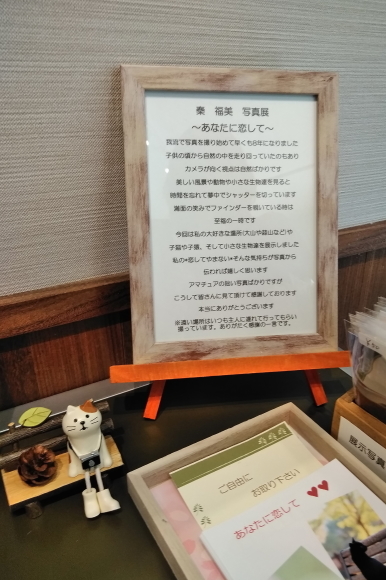 秦 福美 写真展
～あなたに恋して～
我流で写真を撮り始めて早くも8年になりました
子供の頃から自然の中を走り回っていたのもあり
カメラが向く視点は自然ばかりです
美しい風景や動物や小さな生物達を見ると
時間を忘れて夢中でシャッターを切っています
満面の笑みでファインダーを覗いている時は
至福の一時です
今回は私の大好きな場所(大山や蒜山など)や
子猫や子狐、そして小さな生物達を展示しました
私の*恋してやまない*そんな気持ちが写真から
伝われば嬉しく思います
アマチュアの拙い写真ばかりですが
こうして皆さんに見て頂けて感謝しております
本当にありがとうございます
※遠い場所はいつも主人に連れて行ってもらい
撮っています。ありがたく感謝の一言です。
ご自由に
お取り下さい
あなたに恋して
展示写真